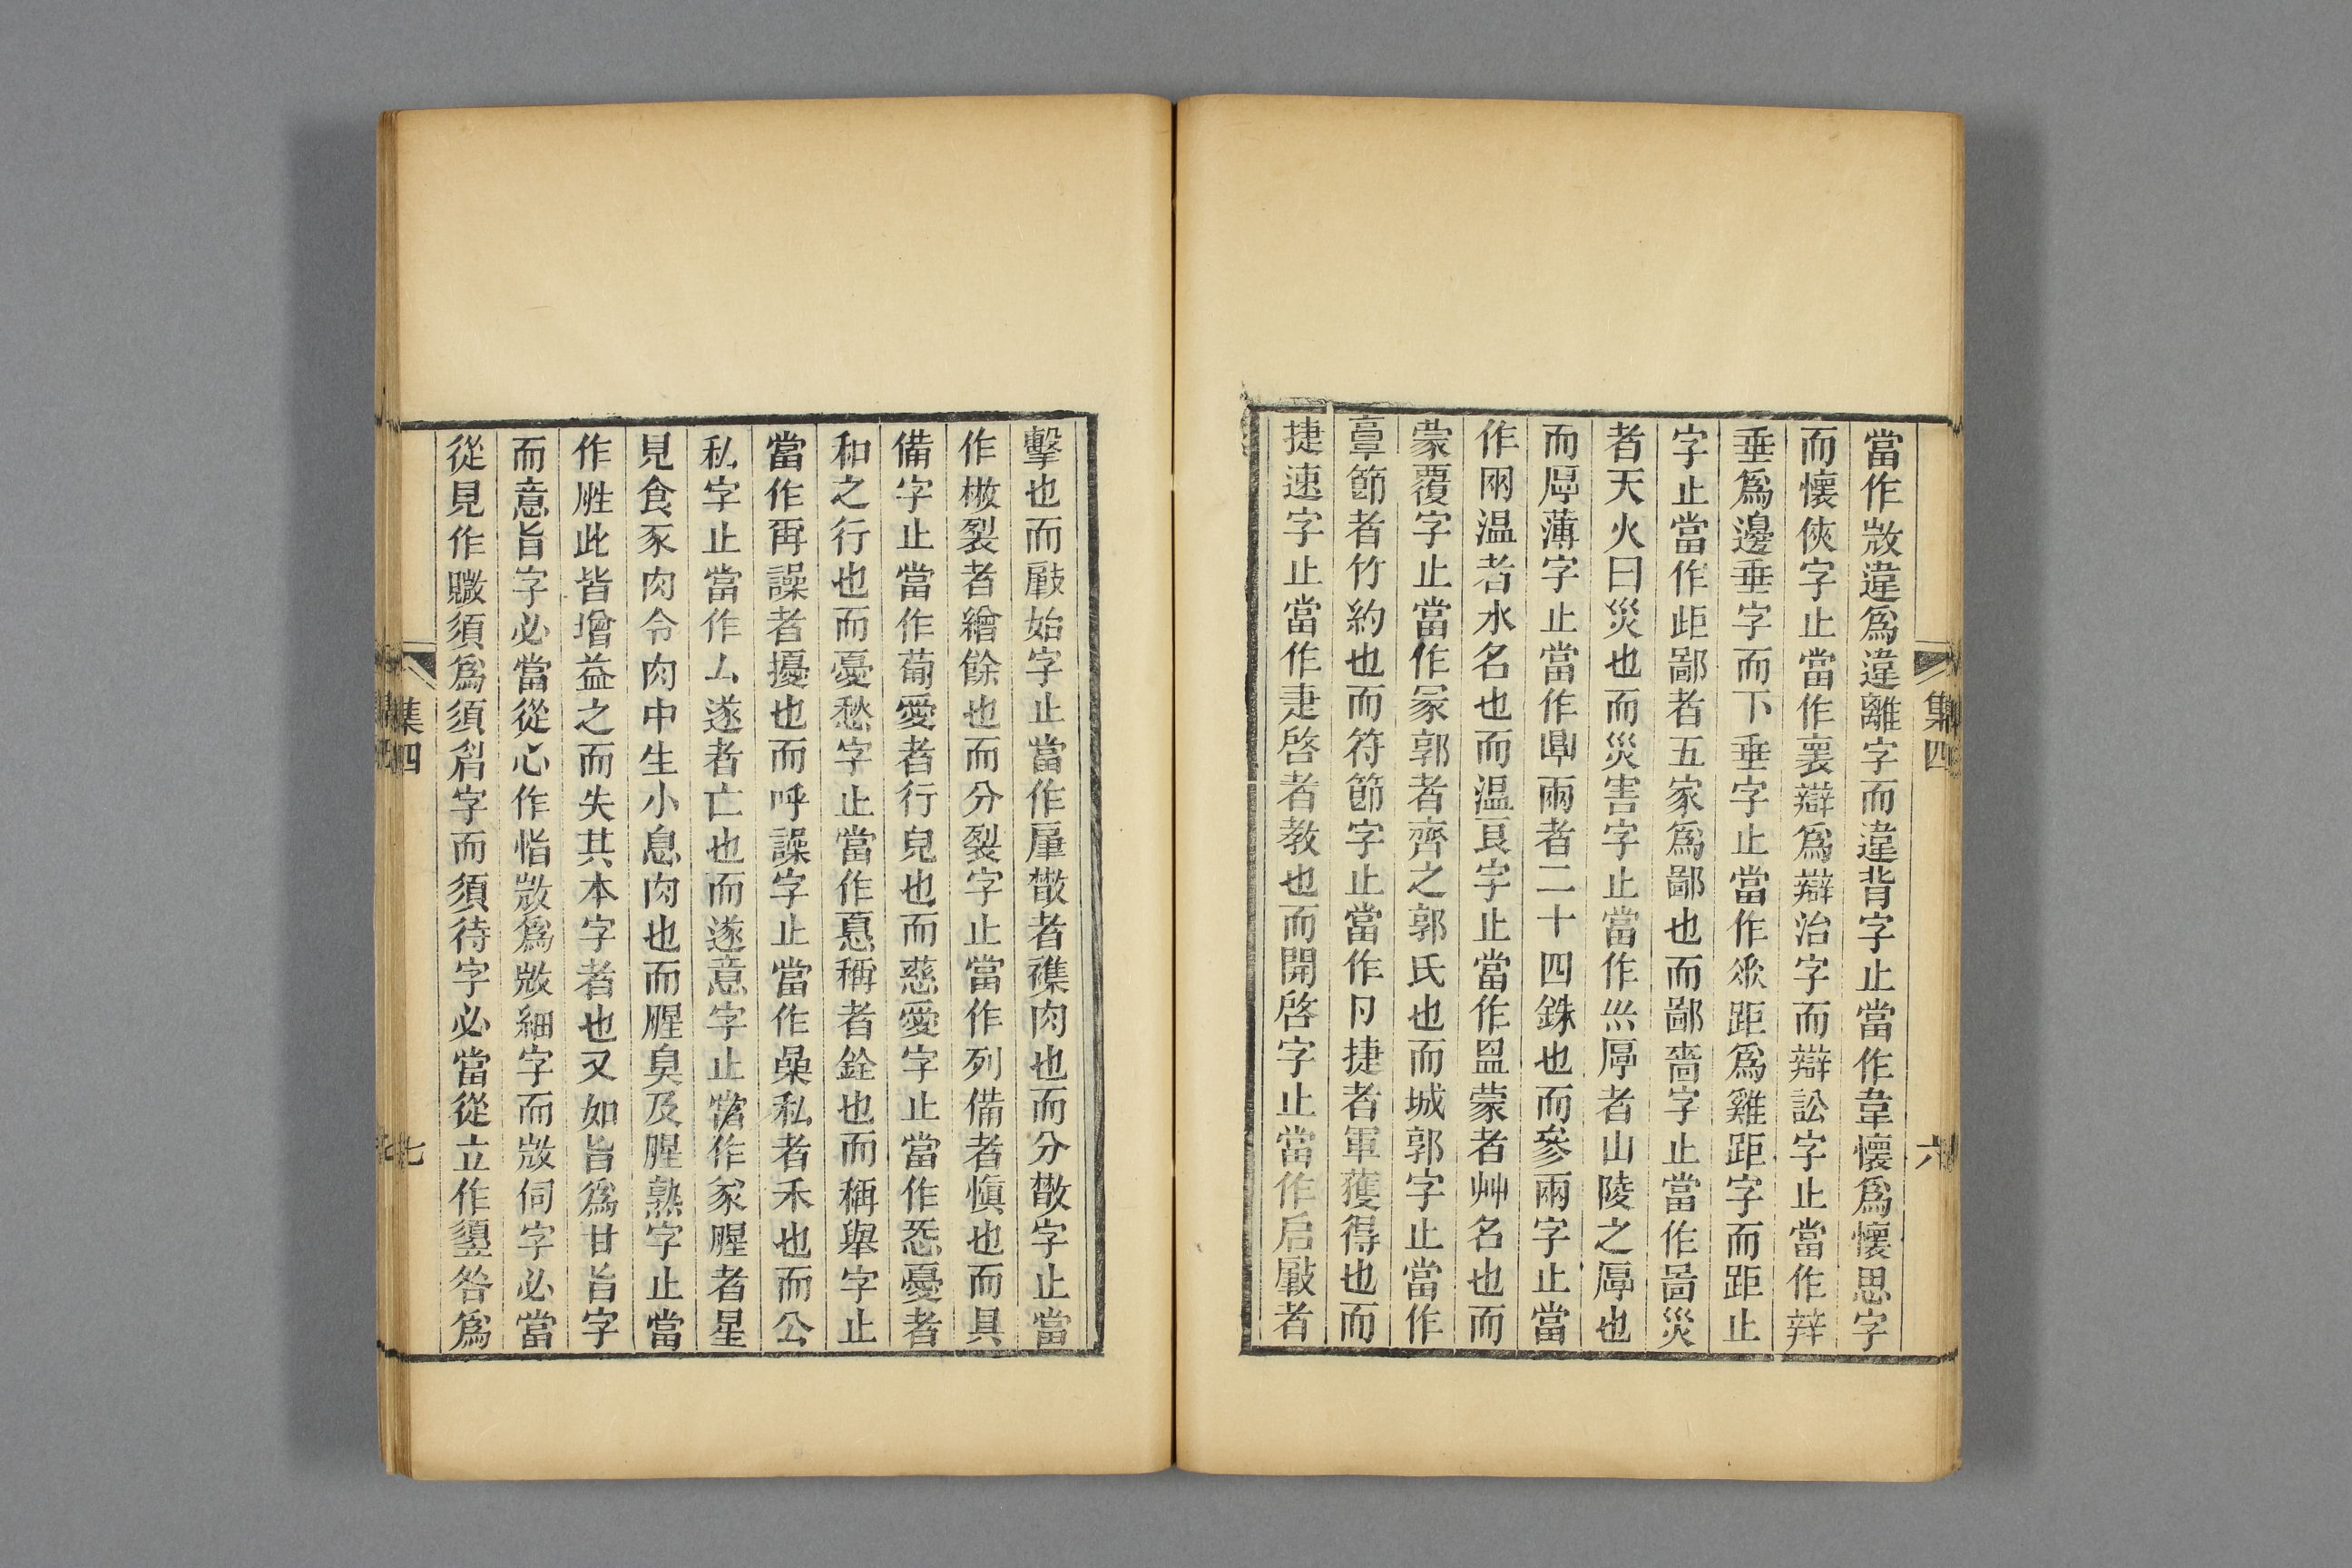 當作㪇違爲違離字而違背字止當作韋懷爲懷思字
而懷俠字止當作褱辯爲辯治字而辯訟字止當作辡
垂爲邊垂字而下垂字止當作𠂹距爲雞距字而距止
字止當作歫鄙者五家爲鄙也而鄙嗇字止當作啚災
者天火曰災也而災害字止當作巛厚者山陵之厚也
而厚薄字止當作㫗兩者二十四銖也而參兩字止當
作㒳温者水名也而温良字止當作𥁕蒙者艸名也而
蒙覆字止當作冡郭者齊之郭氏也而城郭字止當作
𩫏節者竹約也而符節字止當作卪捷者軍獲得也而
捷速字止當作疌啓者教也而開啓字止當作启肁攴者
集四
六
擊也而字始字止當作肁散者雜肉也而分散字止當
作㪔裂者繒餘也而分裂字止當作列備者愼也而具
備字止當作𤰇愛者行皃也而慈愛字止當作㤅憂者
和之行也而憂愁字止當作惪稱者銓也而稱舉字止
當作爯譟者擾也而呼譟字止當作喿私者禾也而公
私字止當作厶遂者亡也而遂意字止當作㒸腥者星
見食豕肉令肉中生小息肉也而腥臭及腥熟字止當
作胜此皆增益之而失其本字者也又如旨爲甘旨字
而意旨字必當從心作恉㪇爲㪇細字而㪇伺字必當
從見作覹須爲須眉字而須待字必當從立作䇓咎爲
集四
七